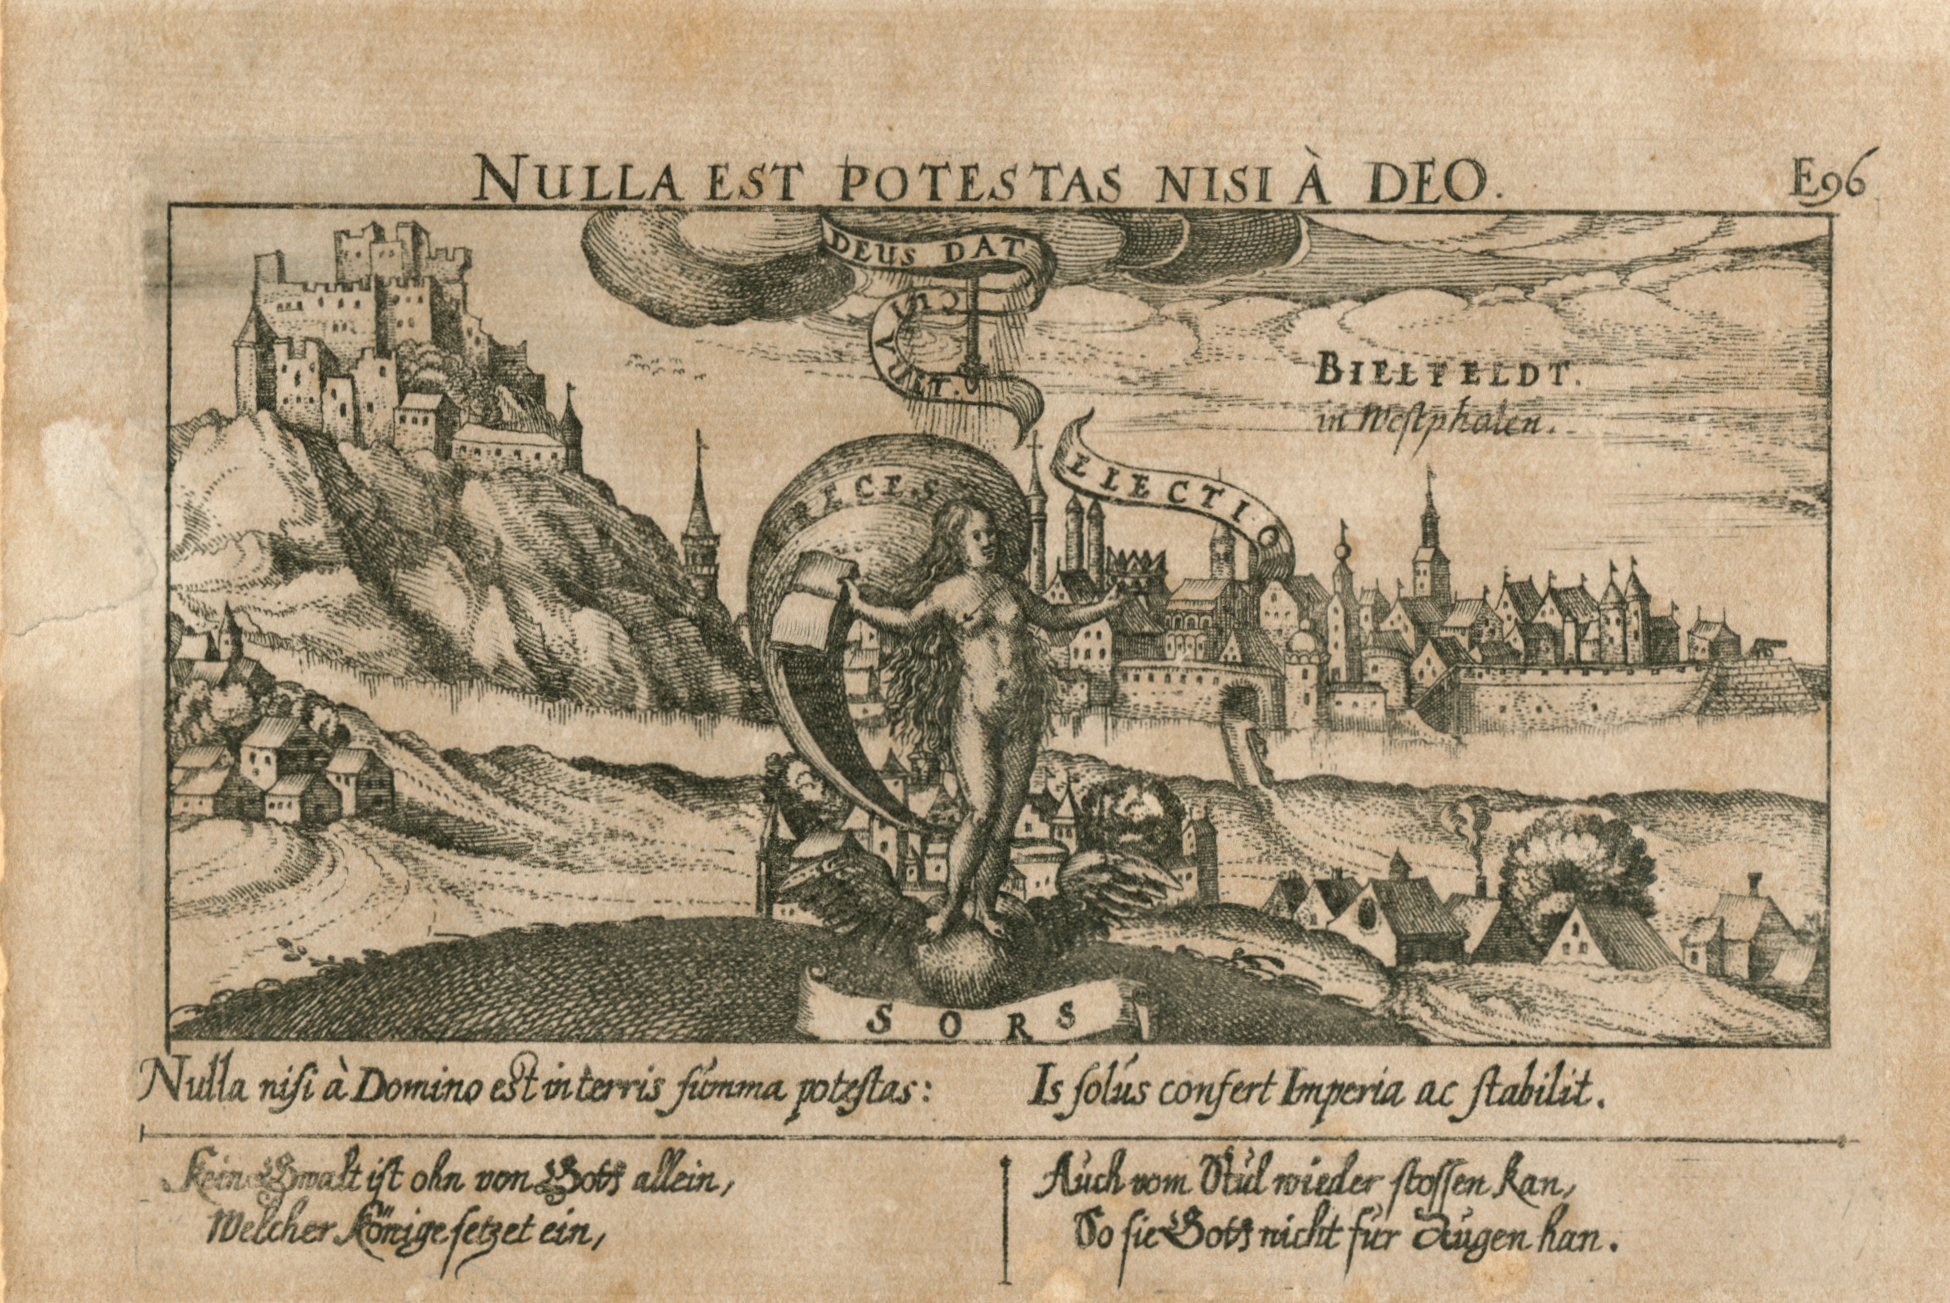 NULLA EST POTESTAS NISI À DEO.
E96
DEUS DAT
CUI
VULT.
BIELFELDT.
in Westphalen.
ELECTIO
PRECES
SORS
Nulla nisi à Domino est in terris summa potestas:
Is solus confert Imperia ac stabilit.
Kein Gwalt ist ohn von Gott allein,
Welcher Könige setzet ein,
Auch vom Stul wieder stossen kan,
So sie Gott nicht für Augen han.